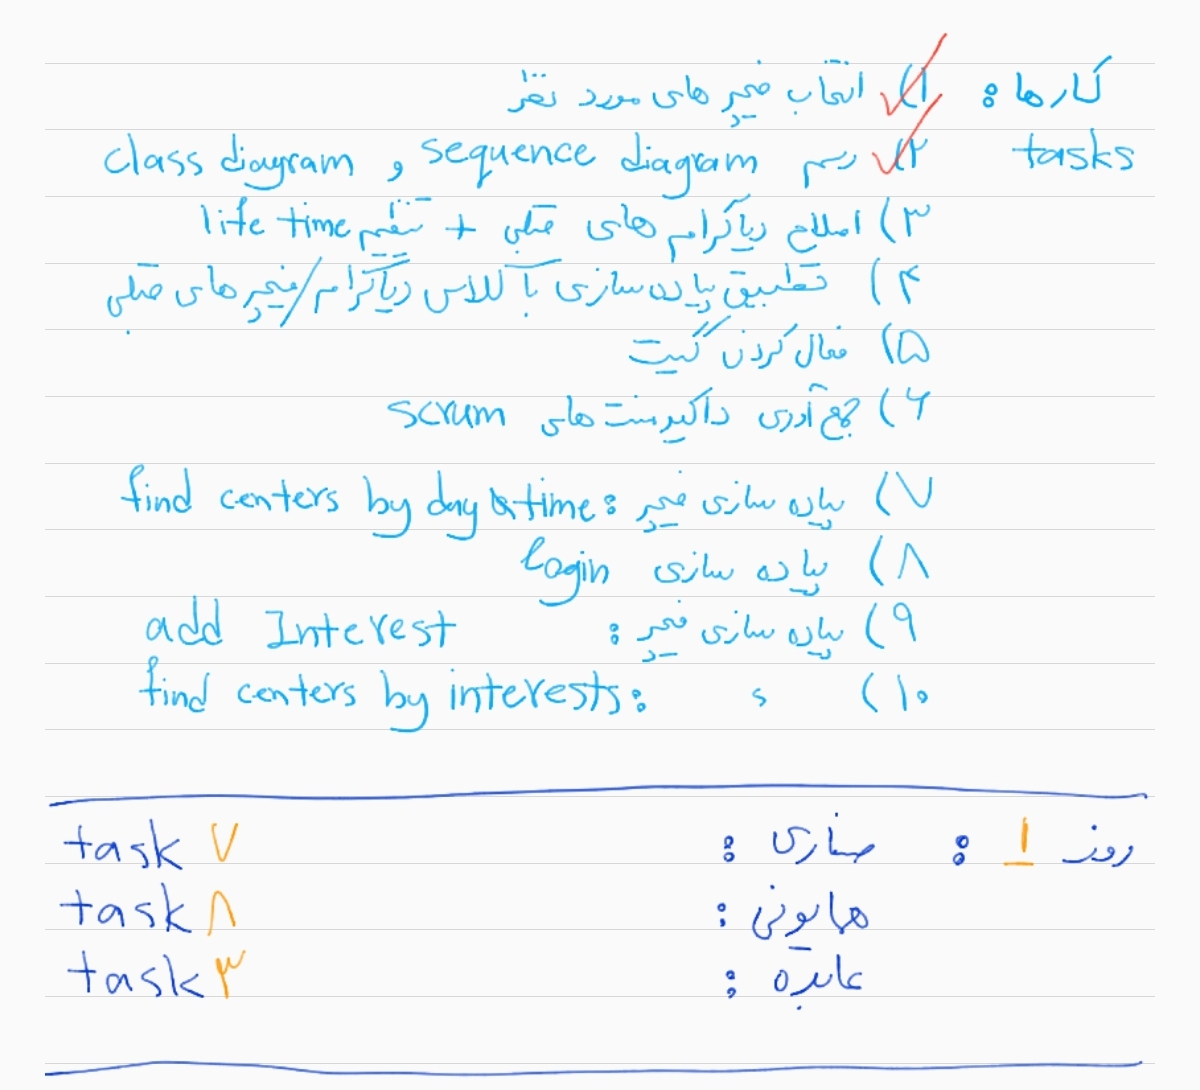 کارها : ۱) انتخاب فیچر های مورد نظر
tasks ۲) رسم sequence diagram و class diagram
۳) اصلاح دیاگرام های قبلی + تنظیم life time
۴) تطبیق پیاده سازی با کلاس دیاگرام/فیچر های قبلی
۵) فعال کردن گیت
۶) جمع آوری داکیومنت های scrum
۷) پیاده سازی فیچر : find centers by day & time
۸) پیاده سازی login
۹) پیاده سازی فیچر : add Interest
۱۰) " : find centers by interests
روز ۱ : صفاری : task ۷
همایونی : task ۸
عابده : task ۳